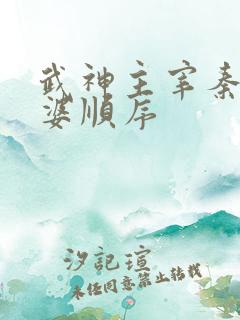 武神主宰秦
婆顺序
汐記瑄
未任同意禁止转载